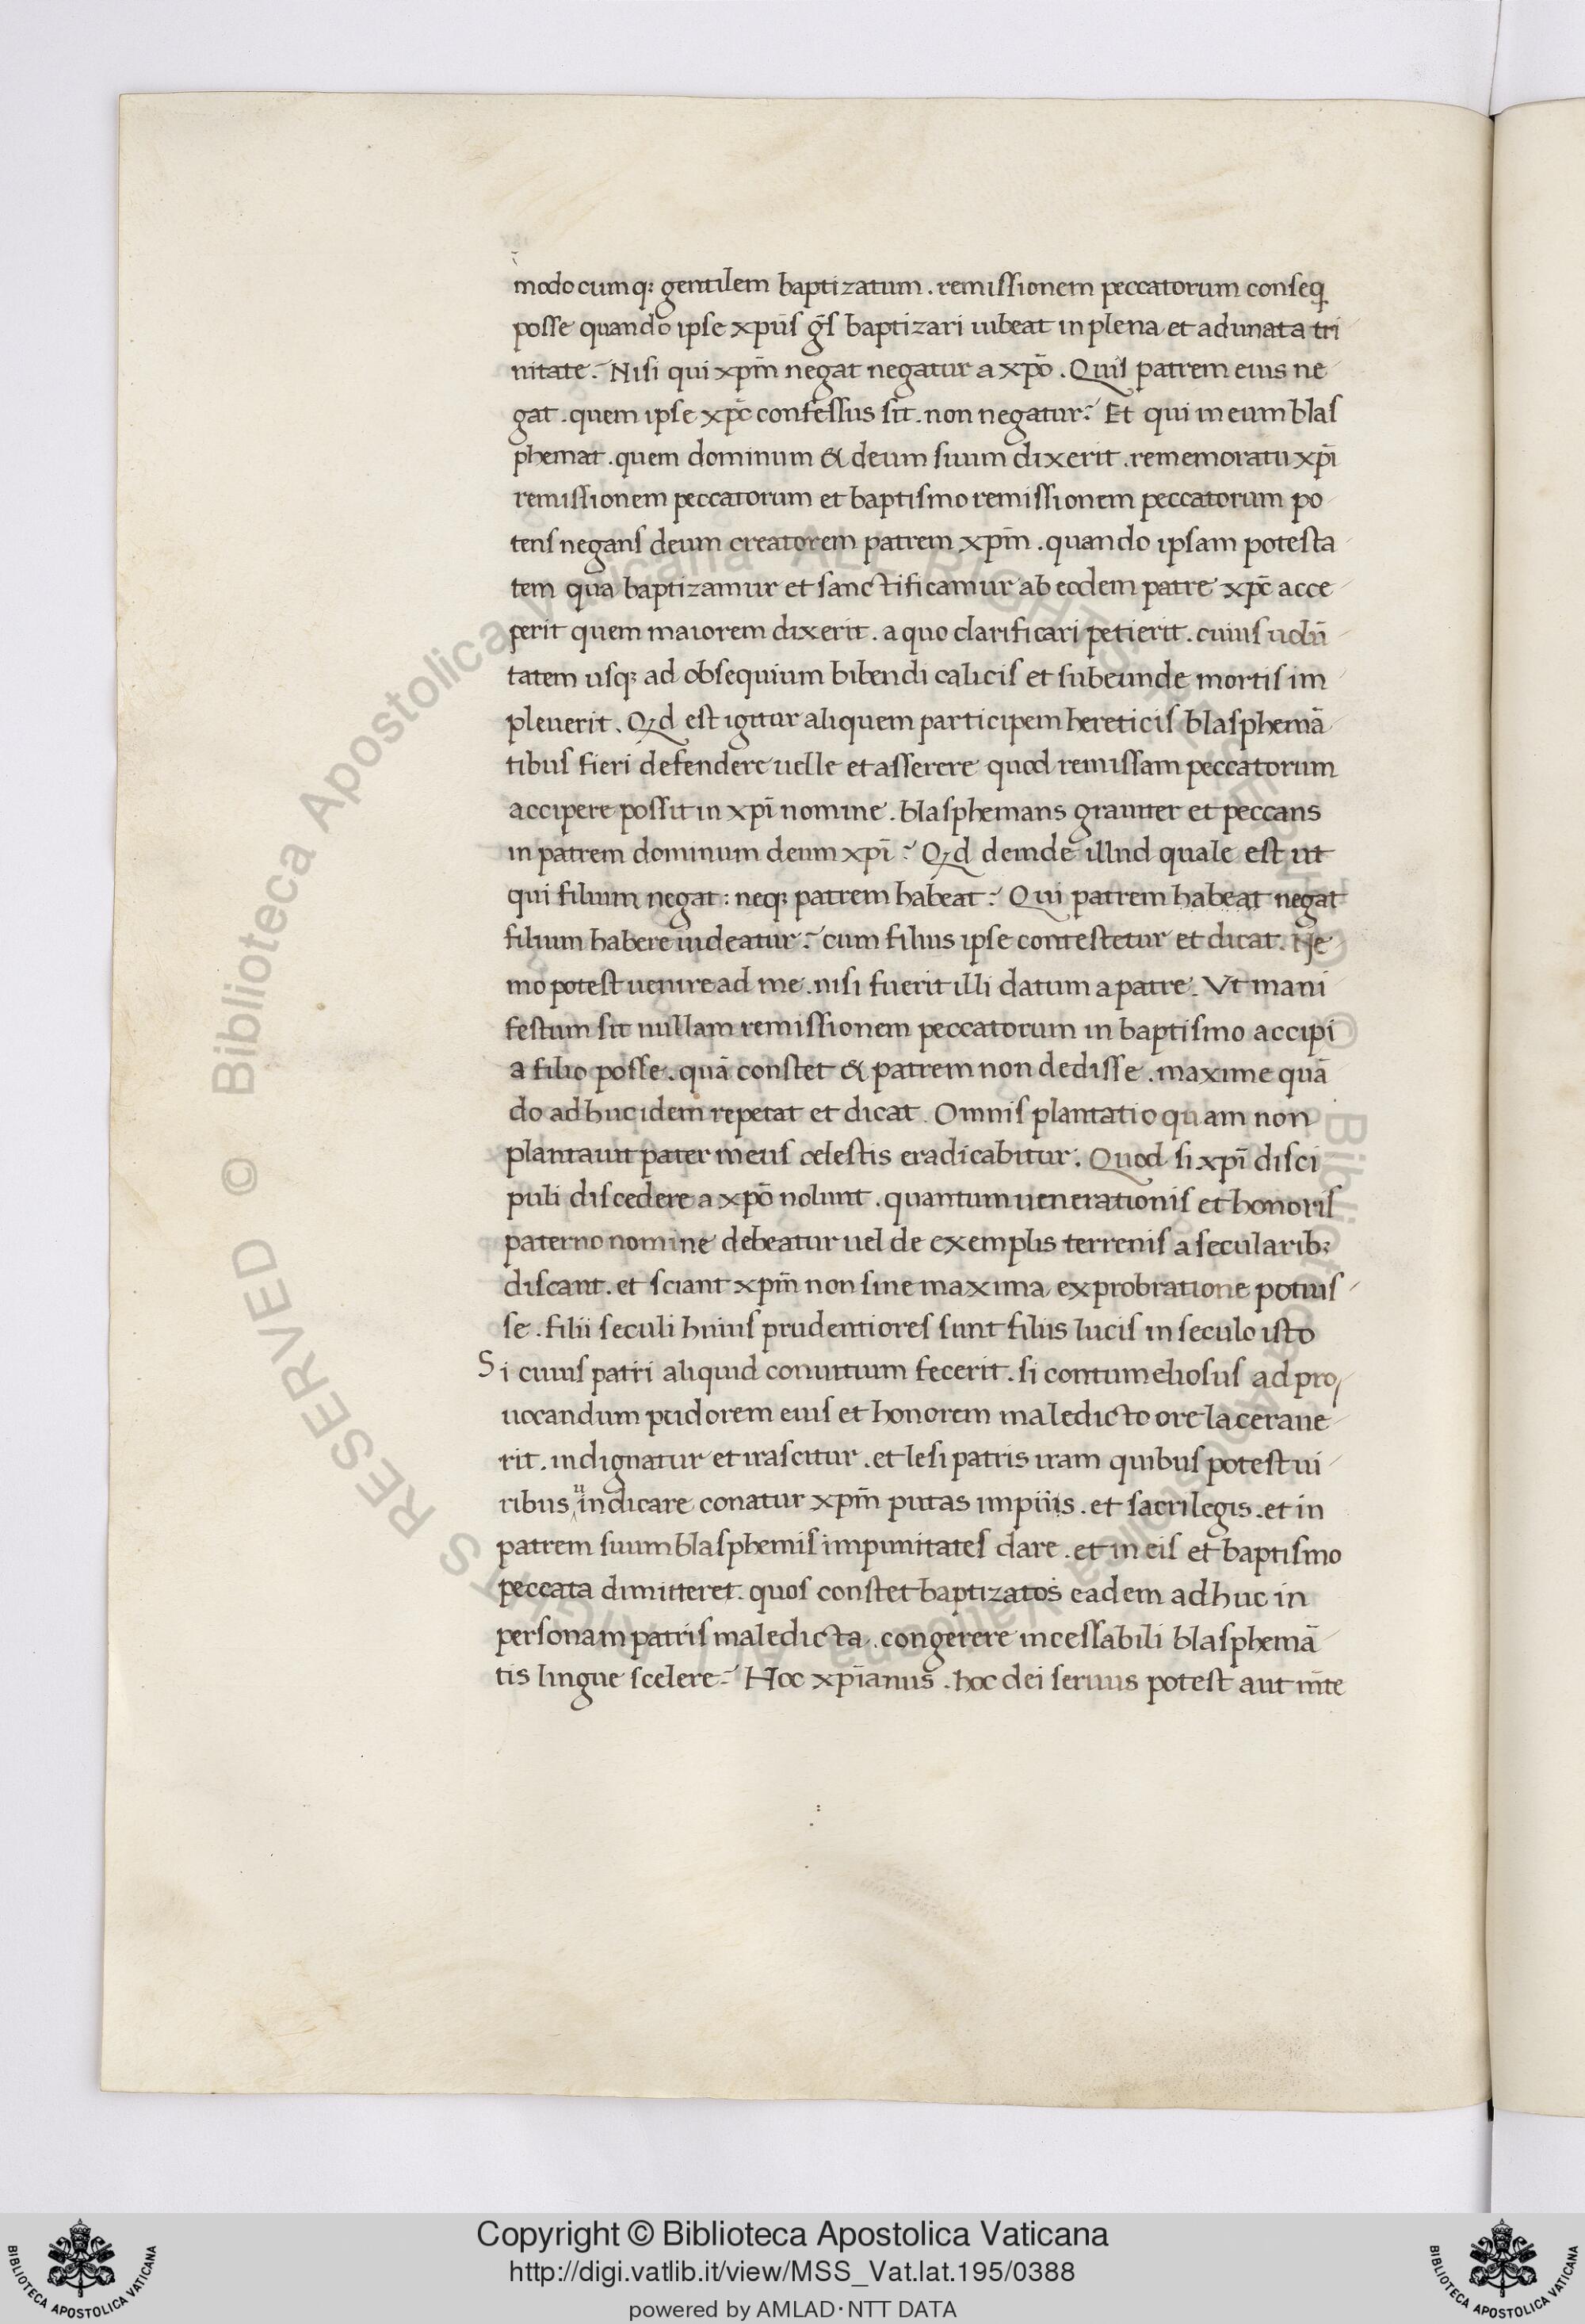 modocumq; gentilem baptizatum . remissionem peccatorum conseq
posse quando ipse xpūs g̅s baptizari iubeat in plena et adunata tri
nitate. Nisi qui xpm̅ negat negatur a xpō . Quis patrem eius ne
gat . quem ipse xpc̅ confessus sit . non negatur: Et qui in eum blas
phemat . quem dominum & deum suum dixerit . rememoratu xpi̅
remissionem peccatorum et baptismo remissionem peccatorum po
tens negans deum creatorem patrem xpm̅ . quando ipsam potesta
tem qua baptizamur et sanctificamur ab eodem patre xpc̅ acce
perit quem maiorem dixerit . a quo clarificari petierit . cuius uolū
tatem usq; ad obsequium bibendi calicis et subeunde mortis im
pleuerit . Qd est igitur aliquem participem hereticis blasphemā
tibus fieri defendere uelle et asserere quod remissam peccatorum
accipere possit in xpi̅ nomine . blasphemans grauiter et peccans
in patrem dominum deum xpi̅ : Qd deinde illud quale est ut
qui filium negat : neq; patrem habeat : Qui patrem habeat negat
filium habere uideatur : cum filius ipse contestetur et dicat . Ne
mo potest uenire ad me . nisi fuerit illi datum a patre . Vt mani
festum sit nullam remissionem peccatorum in baptismo accipi
a filio posse . quā constet & patrem non dedisse . maxime quā
do adhuc idem repetat et dicat . Omnis plantatio quam non
plantauit pater meus celestis eradicabitur . Quod si xpi̅ disci
puli discedere a xpō nolunt . quantum uenerationis et honoris
paterno nomine debeatur uel de exemplis terrenis a secularib;
discant . et sciant xpm̅ non sine maxima exprobratione potuis
se . filii seculi huius prudentiores sunt filiis lucis in seculo isto
Si cuius patri aliquid conuitium fecerit . si contumeliosus ad pro
uocandum pudorem eius et honorem maledicto ore laceraue
rit . indignatur et irascitur . et lesi patris iram quibus potest ui
ribus uindicare conatur xpm̅ putas impiis . et sacrilegis . et in
patrem suum blasphemis impunitates dare . et in eis et baptismo
peccata dimitteret . quos constet baptizatos eadem adhuc in
personam patris maledicta . congerere incessabili blasphemā
tis lingue scelere : Hoc xpi̅anus . hoc dei seruus potest aut mt̅e
Copyright © Biblioteca Apostolica Vaticana
http://digi.vatlib.it/view/MSS_Vat.lat.195/0388
powered by AMLAD·NTT DATA
BIBLIOTECA APOSTOLICA VATICANA
BIBLIOTECA APOSTOLICA VATICANA
© Biblioteca Apostolica Vaticana ALL RIGHTS RESERVED © Biblioteca Apostolica Vaticana ALL RIGHTS RESERVED